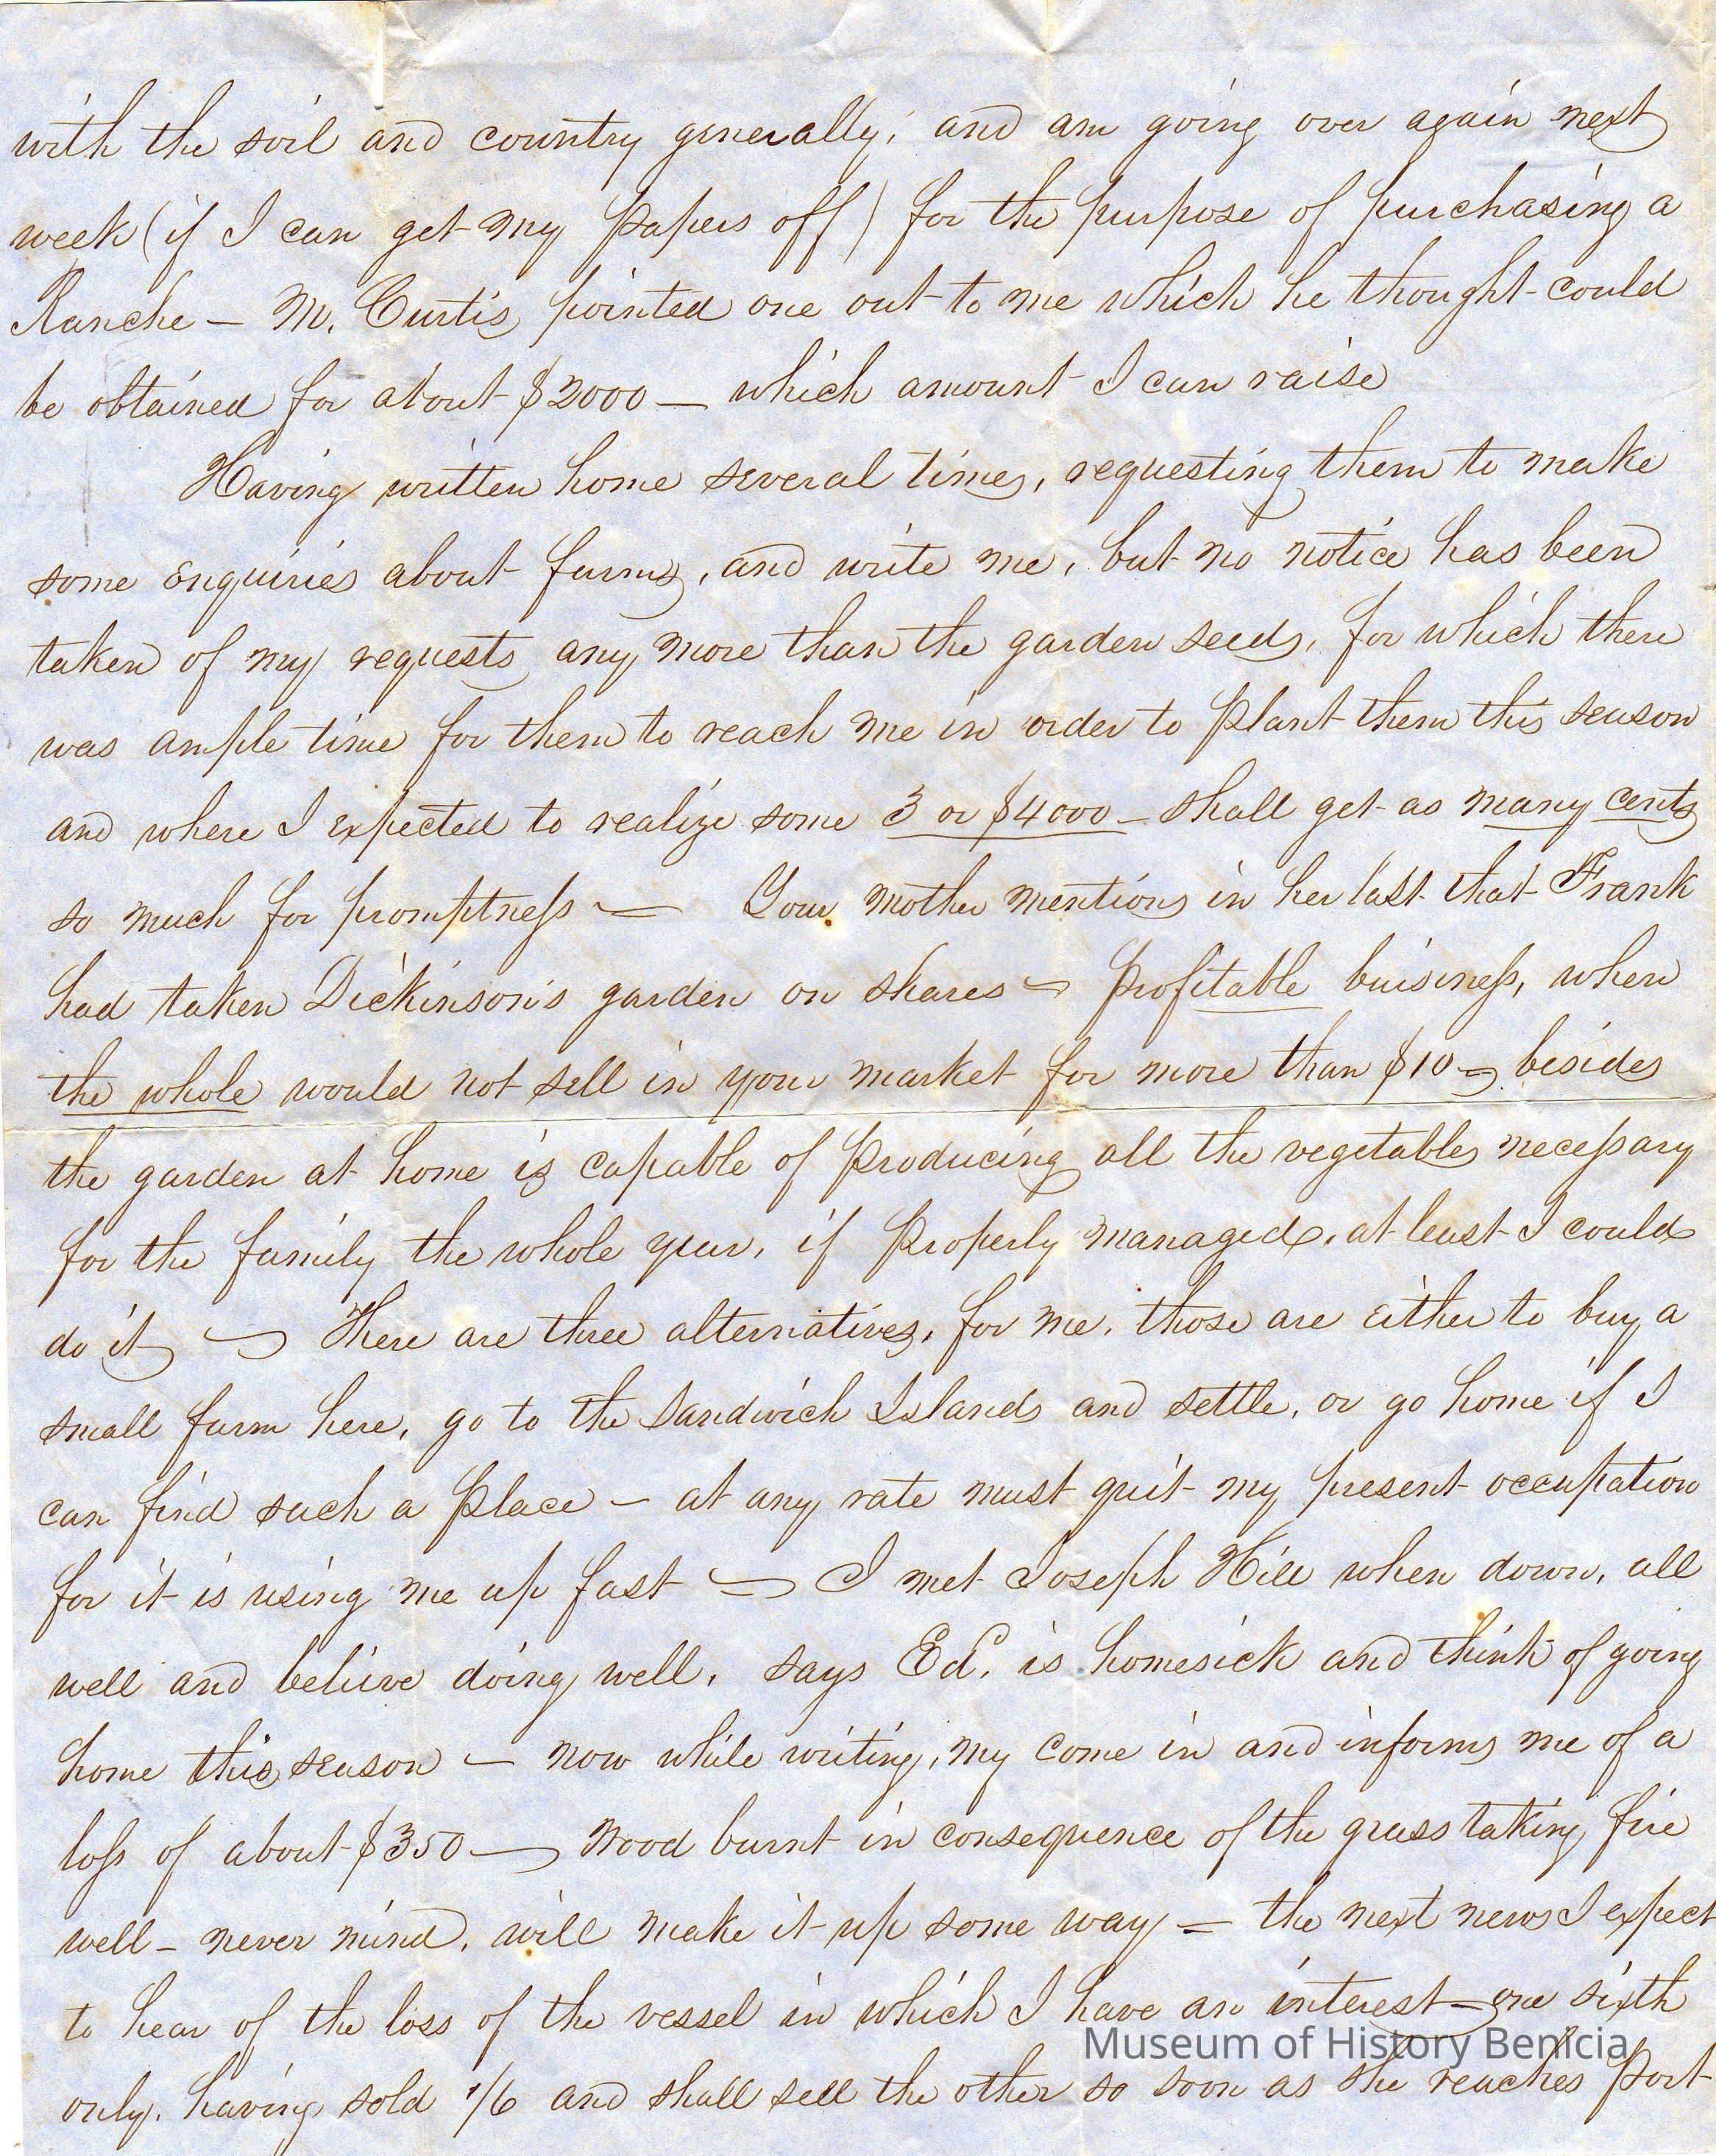 with the soil and country generally; and am going over again next
week (if I can get my papers off) for the purpose of purchasing a
Ranche — M. Curtis pointed one out to me which he thought could
be obtained for about $2000 — which amount I can raise
Having written home several times, requesting them to make
some enquiries about farms, and write me, but no notice has been
taken of my requests any more than the garden seeds, for which there
was ample time for them to reach me in order to plant them this season
and where I expected to realize some 3 or $4000 — shall get as many cents
so much for promptness — Your mother mentions in her last that Frank
had taken Dickinson's garden on shares — profitable buisiness, when
the whole would not sell in your market for more than $10 — besides
the garden at home is capable of producing all the vegetables necessary
for the family the whole year, if properly managed, at least I could
do it — There are three alternatives, for me, those are either to buy a
small farm here, go to the Sandwich Islands and settle, or go home if I
can find such a place — at any rate must quit my present occupation
for it is using me up fast — I met Joseph Hill when down, all
well and believe doing well, says Ed. is homesick and think of going
home this season — now while writing, my come in and informs me of a
loss of about $350 — wood burnt in consequence of the grass taking fire
well — never mind, will make it up some way — the next news I expect
to hear of the loss of the vessel in which I have an interest — one sixth
only, having sold 1/6 and shall sell the other so soon as she reaches Port
Museum of History Benicia